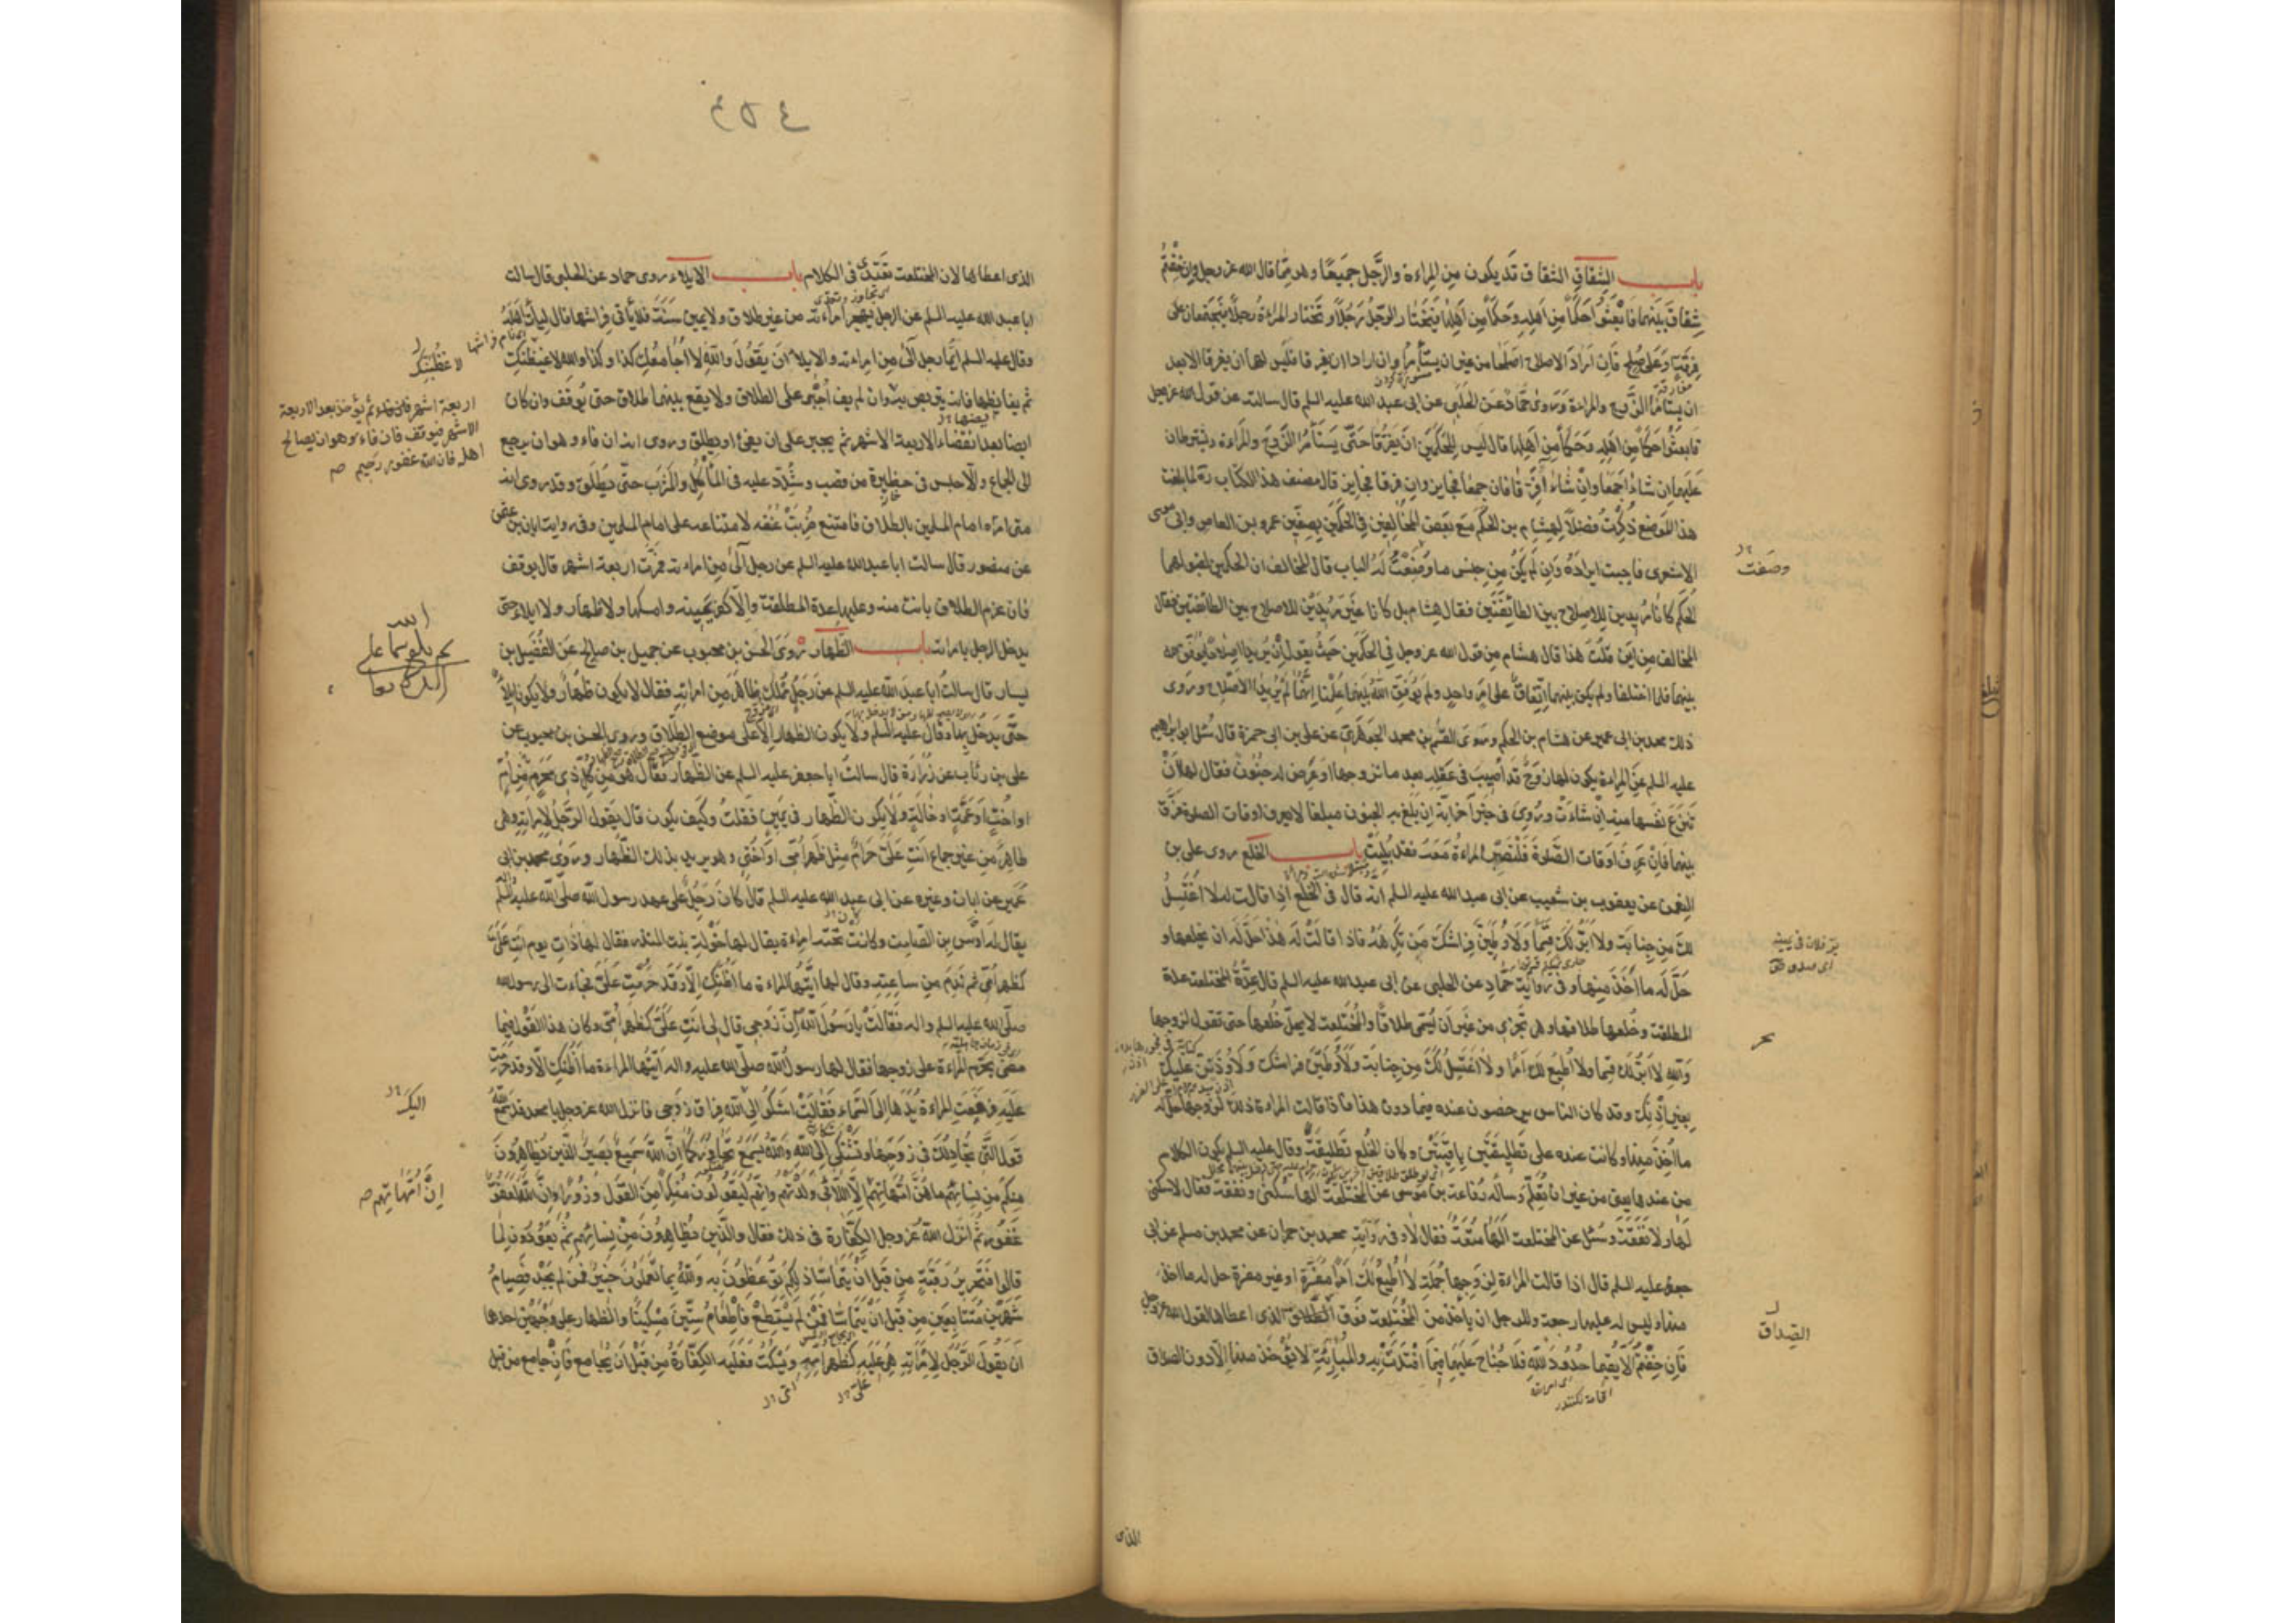 باب الشقاق الشقاق قد يكون من المراءة والرَّجل جميعًا وهو ممّا قال الله عز وجل وان خِفْتُم
شِقاقَ بينهما فابعثوا حَكَمًا من اهلِه وحَكَمًا من اهلها يختار الرّجُل رَجُلًا وتختار المراءةُ رجلًا فيجتمعان على
فرقةٍ او على صُلح فان ارادَ الاصلاح اصلحا من غير ان يستأمرا وان ارادا ان يفرقا فليس لهما ان يفرقا الا بعد
ان يستأمرا الزّوج والمراءة وروى حمّاد عن الحلبي عن ابى عبد الله عليه السلم قال سالته عن قول الله عز وجل
فابعثوا حكمًا من اهله وحكمًا من اهلها قال ليس للحكمين ان يفرّقا حتّى يستأمرا الزّوج والمراءة ويشترطان
عليهما ان شاءا جمعا وان شاءا فرّقا فان جمعا فجايز وان فرقا فجايز قال مصنف هذا الكتاب ره لما بلغت
هذا الموضع ذكرتُ فضلًا لهشام بن الحكم مع بعض المخالفين في الحكمين بصفّين عمرو بن العاص وابى موسى
الاشعرى فاحببت ايرادَهُ وان لم يكن من جنس ما وضعتُ له الباب قال المخالف ان الحكمين لقبولهما
الحكم كانا مُريدين للاصلاح بين الطائفتين فقال هشام بل كانا غير مُريدَيْن للاصلاح بين الطائفتين فقال
المخالف من اين قلتَ هذا قال هشام من قول الله عز وجل في الحكمين حيث يقول اِنْ يريدا اصلاحًا يُوَفّق الله
بينهما فلما اختلفا ولم يكن بينهما اتّفاقٌ على امرٍ واحدٍ ولم يوفّق الله بينهما علمنا انّهما لم يُريدا الاصلاح وروى
ذلك محمد بن ابى عمير عن هشام بن الحكم وروى القسم بن محمد الجوهري عن على بن ابى حمزة قال سُئل ابو ابراهيم
عليه السلم عن المراءة يكون لها زوج قد اصيب في عقله بعد ما تزوجها او عَرَض له جنون فقال لها ان
تنزعَ نفسها منه ان شاءت وروى في خبر آخر انّه ان بلغ به الجنون مبلغا لا يعرف اوقات الصلوة فرّق
بينهما فان عرف اوقات الصّلوة فلتصبر المراءة معه فقد بُليت باب الخلع روى على بن
النعمن عن يعقوب بن شعيب عن ابى عبد الله عليه السلم انه قال في الخلع اذا قالت له لا اغتسِلُ
لك من جنابة ولا ابرّ لك قسمًا ولاوطئنّ فراشك من تكرهه فاذا قالت له هذا حلّ له ان يخلعها و
حلّ له ما اخذ منها وفى رواية حمّاد عن الحلبى عن ابى عبد الله عليه السلم قال عدّة المختلعة عدة
المطلقة وخُلعها طلاقها وهى تجزى من غير ان يُسمّى طلاقًا والمُختلعة لا يحلّ خلعها حتى تقول لزوجها
والله لا ابرّ لك قسما ولا اطيع لك امرًا ولا اغتسِلُ لكَ من جنابة ولاوطئنّ فراشك ولاوذننّ عليك
بغير اذنك وقد كان الناس يرخصون عنده فيما دون هذا فاذا قالت المراءة ذلك لزوجها حل له
ما اخذ منها وكانت عنده على تطليقتين باقيتين وكان الخُلع تطليقة وقال عليه السلم يكون الكلام
من عندها يعنى من غير ان تُعلّم وسأله رفاعة بن موسى عن المختلعة الها سكنى ونفقة فقال لا سكنى
لها ولا نفقة وسُئل عن المختلعة الها متعة فقال لا وفى رواية محمد بن حمران عن محمد بن مسلم عن ابى
جعفر عليه السلم قال اذا قالت المراءة لزوجها جملةً لا اطيعُ لكَ امرًا مفسّرة او غير مفسرة حل له ما اخذ
منها وليس له عليها رجعة وللرجل ان ياخذ من المُختلعة فوق الصّداق الذى اعطاها لقول الله عز وجل
فان خِفتُم الّا يُقيما حدودَ الله فلا جُناح عليهما فيما افتدتْ به والمُبارئة لا يؤخذ منها الّا دون الصداق
وضعت
الصداق
الذى
الذى اعطاها لان المختلعة تعتدى فى الكلام باب الايلاء روى حماد عن الحلبى قال سالت
ابا عبد الله عليه السلم عن الرجل يهجر امراءته من غير طلاق ولا يمين سَنَةً فلا يأتى فراشها قال ليأت اهلَهُ
وقال عليه السلم ايّما رجل آلى من امراءته والايلاء ان يقول والله لا اُجامعك كذا وكذا والله لاغيظنك
ثم يغايظها فانه يتربص به وان لم يف اُجبر على الطلاق ولا يقع بينهما طلاق حتى يُوقف وان كان
ايضا بعد انقضاء الاربعة الاشهر ثم يجبر على ان يفئ او يطلق وروى انه ان فاء وهو ان يرجع
الى الجماع والّا حبس فى حظيرة من قصب وشُدّد عليه فى المأكل والمشرب حتّى يطلّق وقد روى انه
متى امره امام المسلمين بالطلاق فامتنع ضُربتْ عُنقه لامتناعه على امام المسلمين وفى رواية ابان بن عثمن
عن منصور قال سالت ابا عبد الله عليه السلم عن رجل آلى من امراءته فمرّت اربعة اشهر قال يوقف
فان عزم الطلاق بانت منه وعليها عدة المطلقة والّا كفّر يمينه وامسكها ولا ظهار ولا ايلاء حتى
يدخل الرجل بامراته باب الظهار رَوى الحسن بن محبوب عن جميل بن صالح عن الفُضيل بن
يسار قال سالتُ ابا عبد الله عليه السلم عن رجلٍ مملّك ظاهر من امراته فقال لا يكون ظهارٌ ولا يكون ايلاءٌ
حتّى يدخل بها وقال عليه السّلم ولا يكون الظهار الّا على موضع الطّلاق وروى الحسن بن محبوب عن
على بن رئاب عن زُرارة قال سالتُ ابا جعفر عليه السلم عن الظهار فقال هو من كلّ ذى محرمٍ من امٍّ
او اختٍ او عمّةٍ او خالةٍ ولا يكون الظّهار فى يمين فقلتُ وكيف يكون قال يقول الرّجل لامراتِه وهى
طاهرٌ من غير جماع انت علىّ حرامٌ مثل ظهر اُمّى او اختى وهو يريد بذلك الظّهار وروى محمد بن ابى
عمير عن ابان وغيره عن ابى عبد الله عليه السلم قال كان رجلٌ على عهد رسول الله صلّى الله عليه واله وسلم
يقال له اوس بن الصّامت وكانت تحته امراءة يقال لها خولة بنت المنذر فقال لها ذات يوم انتِ علىّ
كظهر اُمّى ثم ندم من ساعته وقال لها ايّتها المراءة ما اظنّكِ الّا وقد حَرُمتِ علىّ فجاءت الى رسول الله
صلّى الله عليه واله فقالتْ يا رسولَ الله انّ زوجى قال لى انتِ علىّ كظهر اُمّى وكان هذا القول فيما
مضى يحرّم المراءة على زوجها فقال لها رسول الله صلّى الله عليه واله ايّتها المراءة ما اظنّكِ الّا وقد حرمت
عليه فرفعتِ المراءة يدَها الى السّماء فقالتْ اشكو الى الله فراق زوجى فانزل الله عز وجل يا محمد قد سمع الله
قول الّتى تجادلك فى زوجها وتشتكى الى الله والله يسمع تحاوركما انّ الله سميعٌ بصيرٌ الّذين يظاهرون
منكم من نسائهم ما هنّ امّهاتهم الّا اللّائى ولدنهم وانهم ليقولون منكرًا من القول وزورًا وانّ الله لعفوّ
غفورٌ ثم انزل الله عز وجل الكفّارة فى ذلك فقال والّذين يظاهرون من نسائهم ثم يعودون لما
قالوا فتحرير رقبةٍ من قبل ان يتماسّا ذلكم توعظون به والله بما تعملون خبيرٌ فمن لم يجد فصيامُ
شهرين متتابعين من قبل ان يتماسّا فمن لم يستطع فاطعامُ ستّين مسكينًا والظهار على وجهين احدها
ان يقول الرّجل لامراتِه هى عليه كظهر امّه ويسكت فعليه الكفّارةُ من قبل ان يجامع فان جامع من قبل
اربعة اشهر فان فاء ثم يؤخذ بعد الاربعة
الاشهر فيوقف فان فاء وهو ان يصالح
اهله فان الله غفور رحيم صح
اليك
انّ امّهاتهم صح